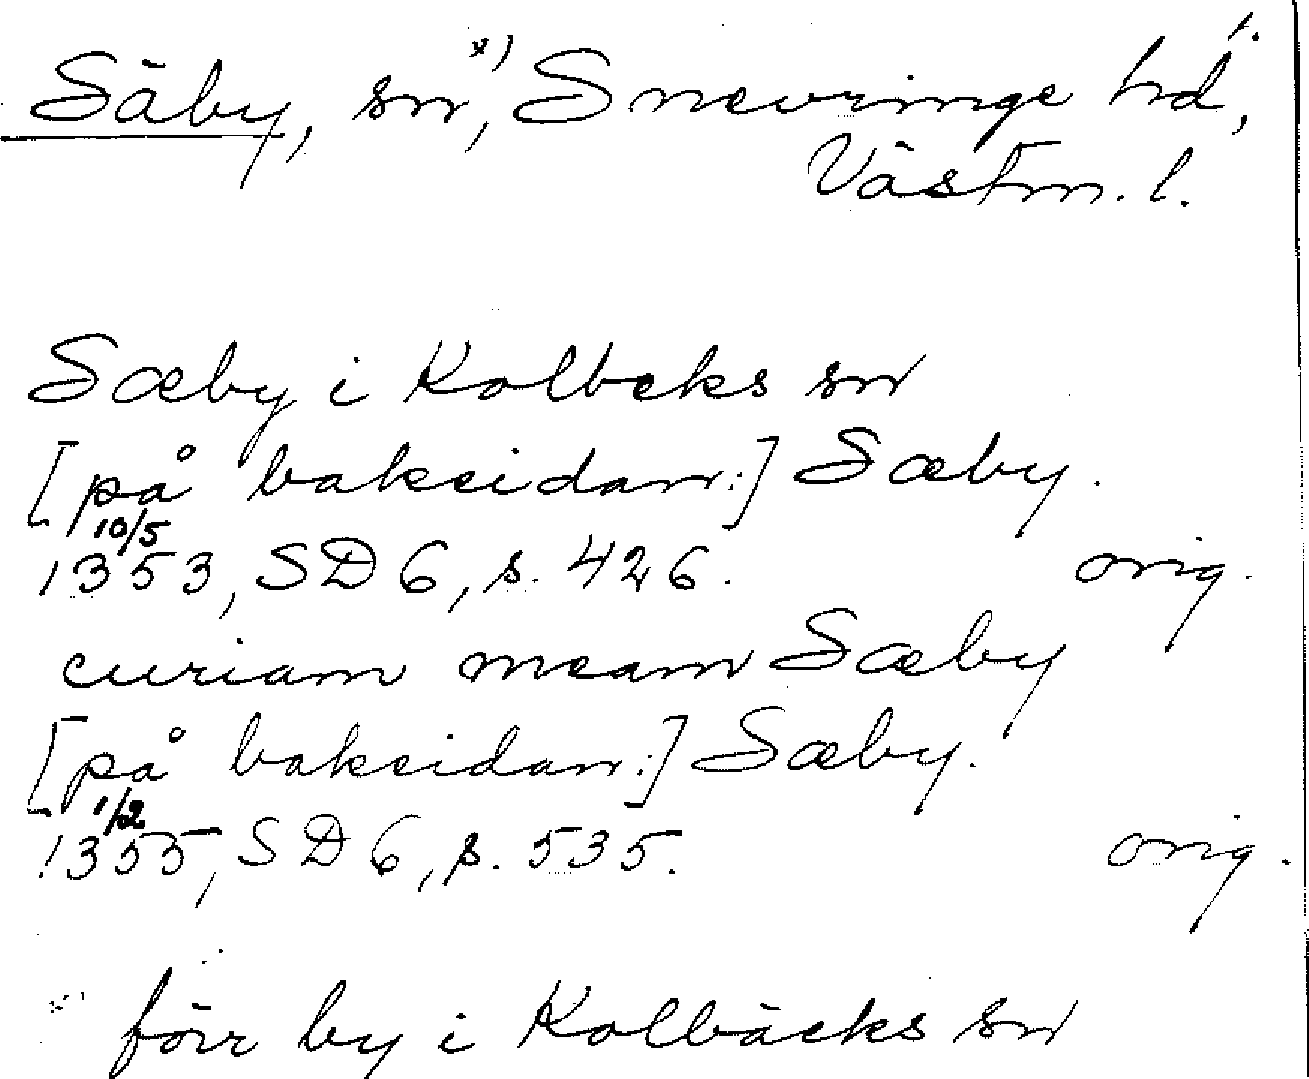 1.
Säby, sn,*) Snevringe hd,
Västm. l.
Sæby i Kolbeks sn
[på baksidan:] Sæby.
10/5
1353, SD 6, s. 426. orig.
curiam meam Sæby
[på baksidan:] Sæby.
1/2
1355, SD 6, s. 535. orig.
*) förr by i Kolbäcks sn